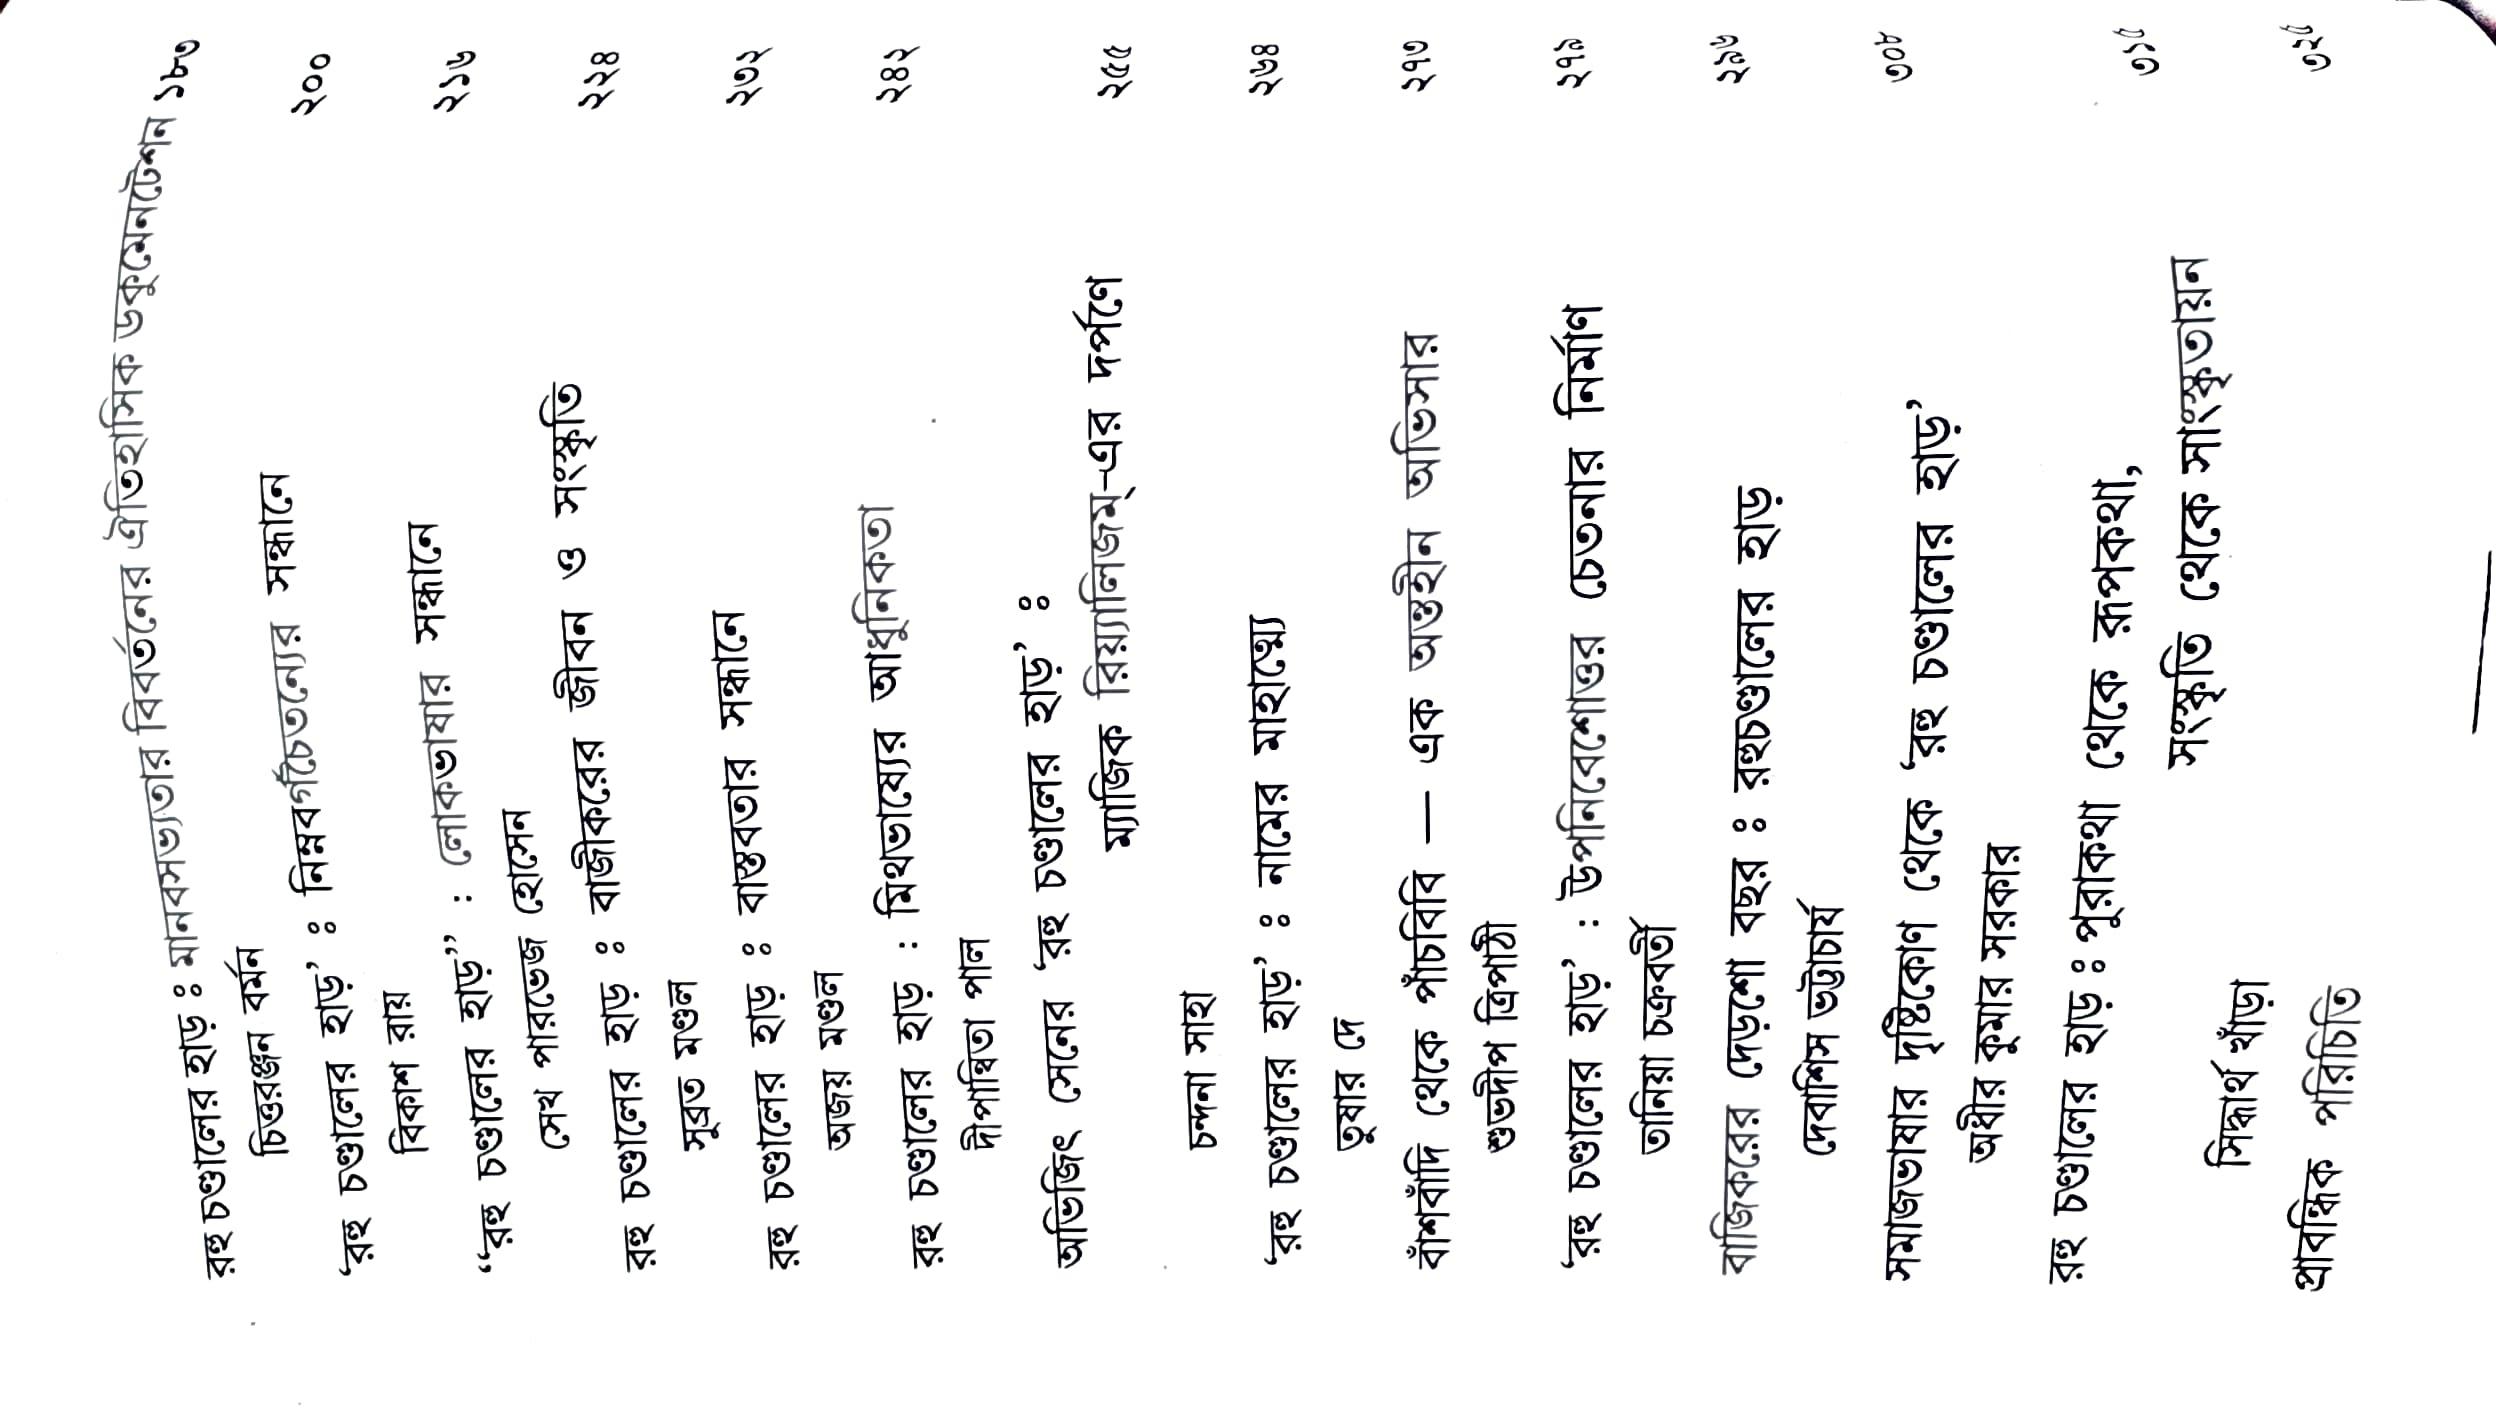 রহু চণ্ডালের হাড় ঃ মানবসভ্যতার বিবর্তনের ঐতিহাসিক ডকুমেনটেশন ১৮৩
চিত্তরঞ্জন বর্মন
‘রহু চণ্ডালের হাড়’ ঃ নিম্নবর্গচৈতন্যের সন্ধানে ২০০
বিকাশ রায়
“রহু চণ্ডালের হাড়” : লোকভাষার সন্ধানে ২১৬
সেখ পারভেজ হোসেন
রহু চণ্ডালের হাড় ঃ বাজীকরের জীবন ও সংস্কৃতি ২২৪
সুব্রত মণ্ডল
রহু চণ্ডালের হাড় ঃ বাস্তবতার সন্ধানে ২৩২
অজয় মণ্ডল
রহু চণ্ডালের হাড় : মিথভাষ্যের আধুনিকতা ২৪২
দীপান্বিতা পাল
অভিজিৎ সেনের ‘রহু চণ্ডালের হাড়’ ঃ
ম্যাজিক রিয়্যালিজম্-এর দর্পণে ২৫৫
চন্দনা সাহা
‘রহু চণ্ডালের হাড়’ ঃ নামের মাহাত্ম্যে ২৬৪
তুষার দে
বাঁশবাঁদি থেকে পাঁচবিবি — এক অন্তহীন অভিসার ২৭৩
শুভদীপ ত্রিপাঠী
‘রহু চণ্ডালের হাড়’ : উপনিবেশোত্তর চেতনার নির্মাণ ২৭৯
তানিয়া চক্রবর্তী
বাজিকরের দেড়শো বছর ঃ রহুচণ্ডালের হাড় ২৯৬
দেবাশিস ভট্টাচার্য
সমাজভাষার দৃষ্টিকোণ থেকে ‘রহু চণ্ডালের হাড়’ ৩০৮
অধীর কুমার সরকার
রহু চণ্ডালের হাড় ঃ পুরাকথা থেকে রূপকথা,
সংস্কৃতি থেকে সাংস্কৃতায়ন ৩১৫
সিদ্ধার্থ খাঁড়া
প্রাবন্ধিক পরিচিতি ৩২৫